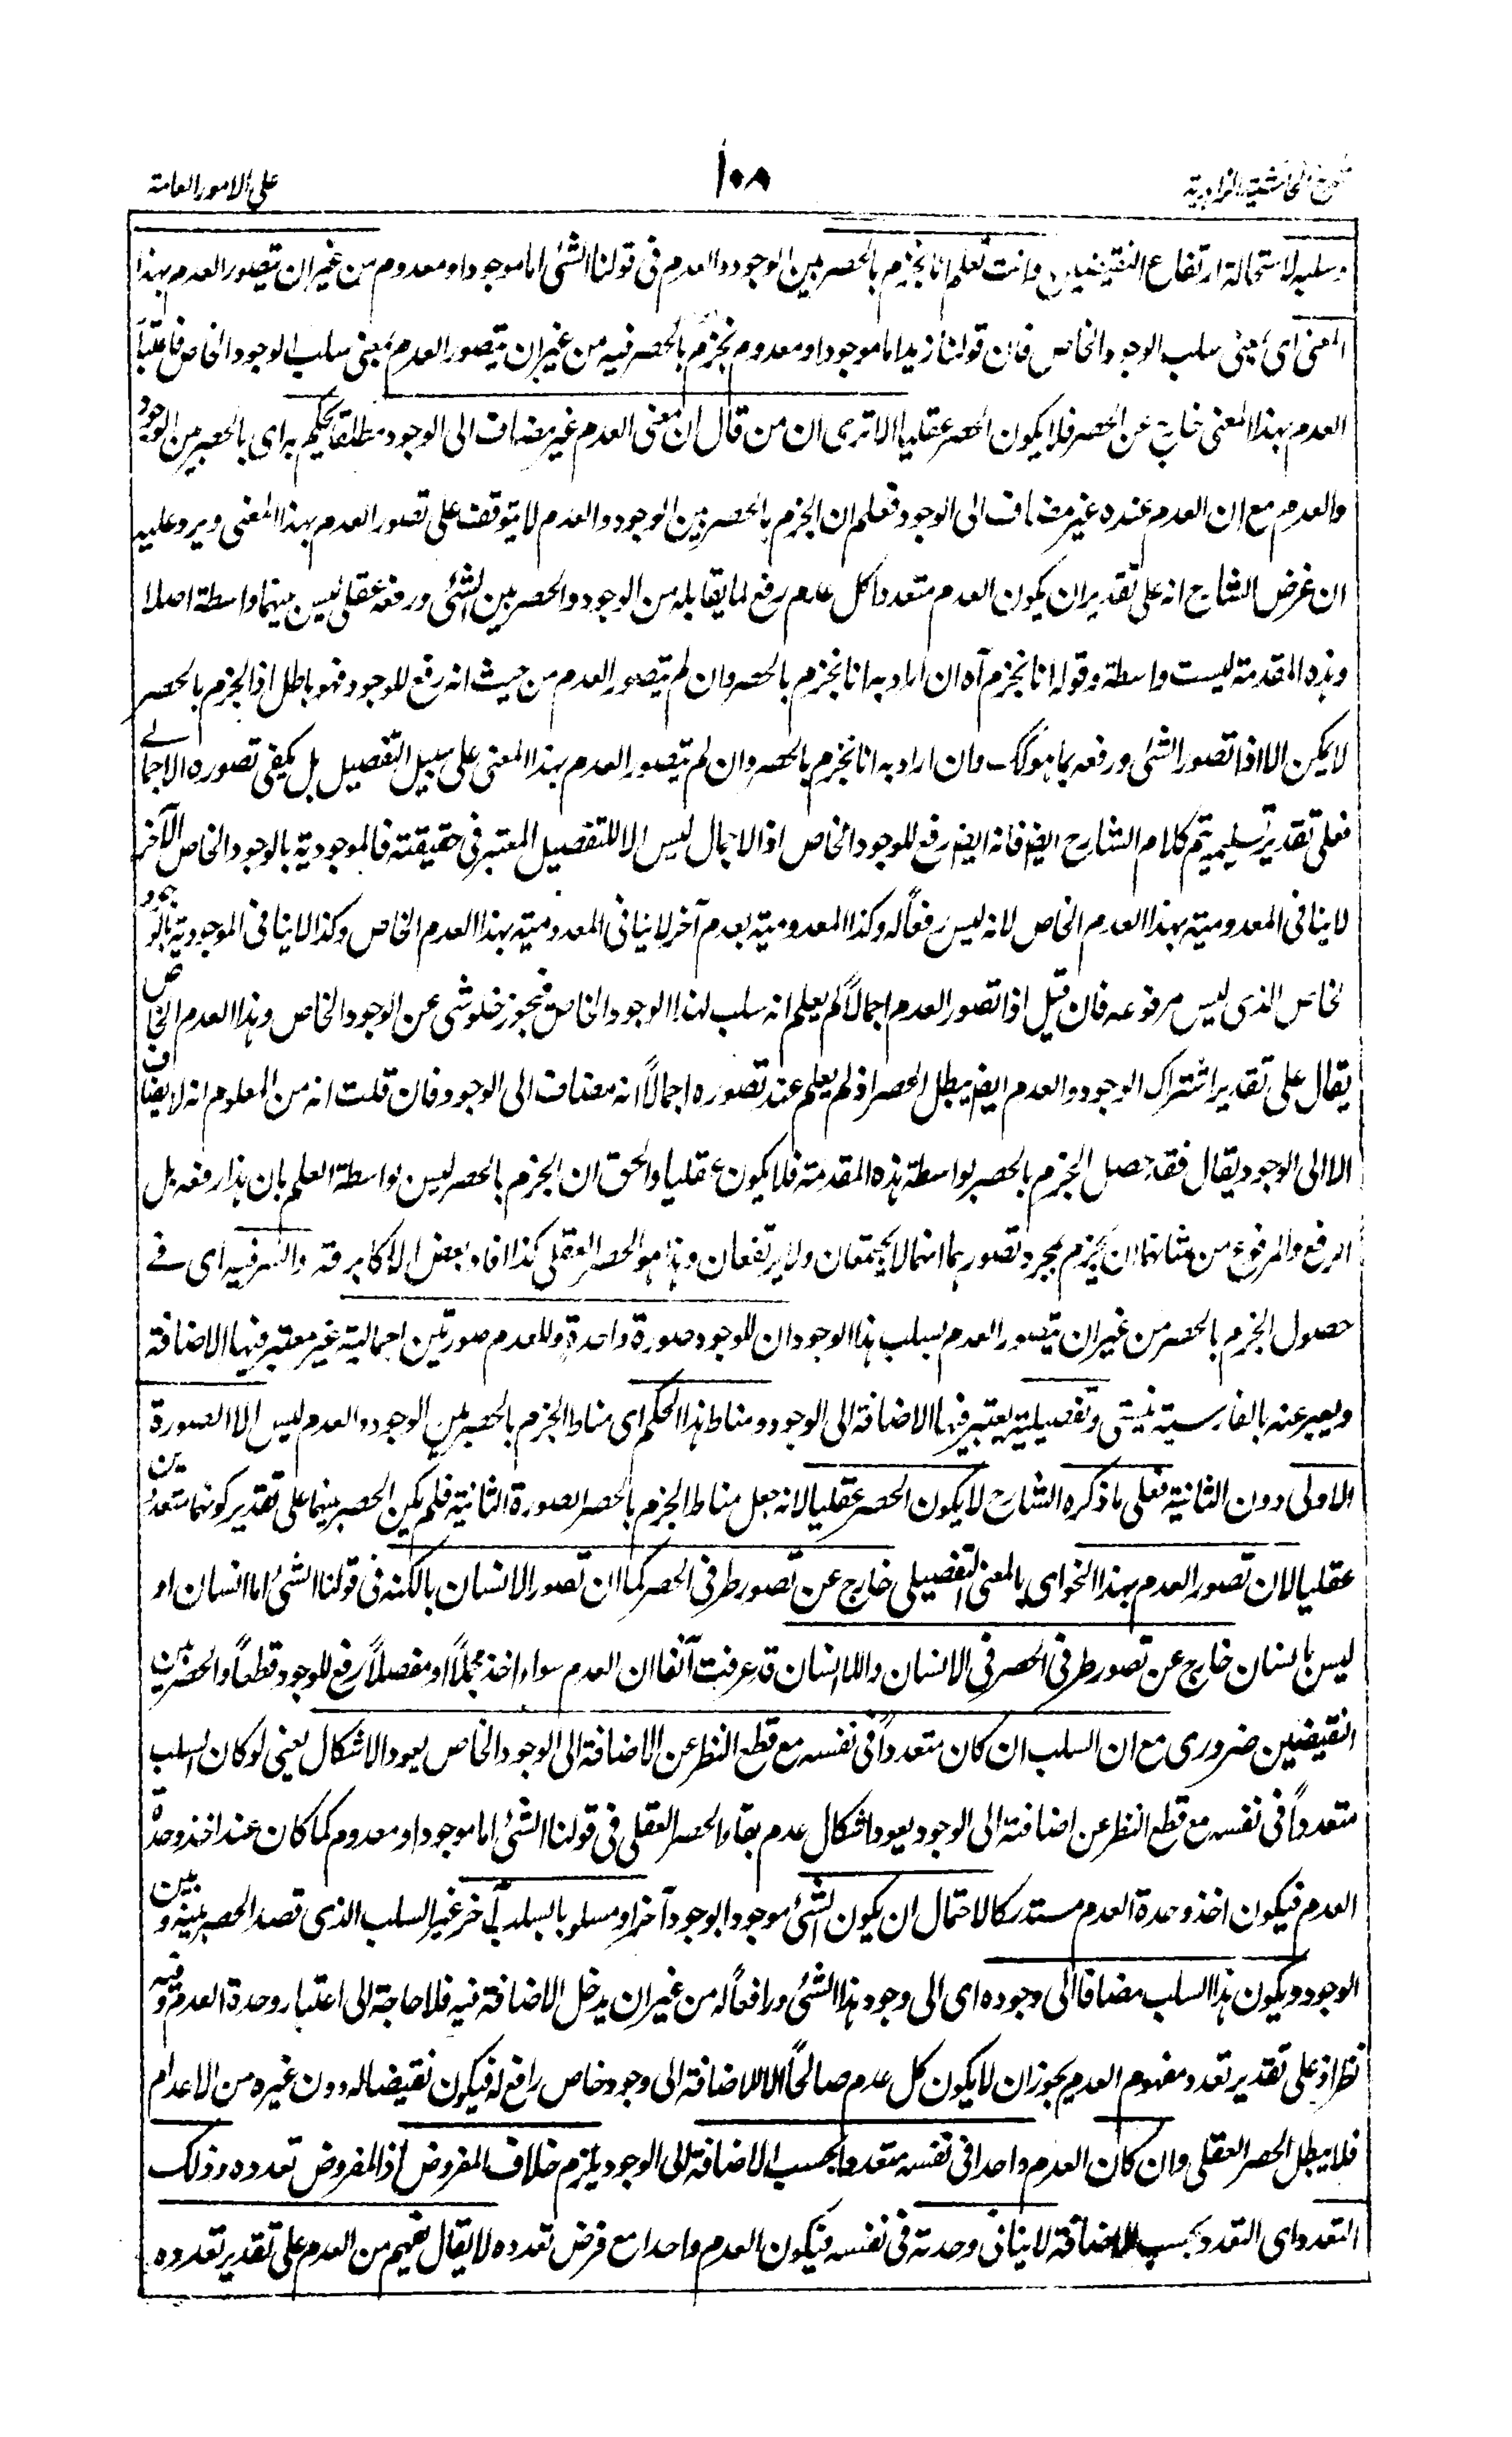 على الامور العامة
١٠٨
وسلبه لاستحالة ارتفاع النقيضين وانت تعلم انا نجزم بالحصر بين الوجود والعدم فى قولنا الشئ اما موجود او معدوم من غير ان يتصور العدم بهذا
المعنى اى بمعنى سلب الوجود الخاص فان قولنا زيد اما موجود او معدوم نجزم بالحصر فيه من غير ان يتصور العدم بمعنى سلب الوجود الخاص فاعتبار
العدم بهذا المعنى خارج عن الحصر فلا يكون الحصر عقليا الا ترى ان من قال ان معنى العدم غير مضاف الى الوجود مطلقا يحكم به اى بالحصر بين الوجود
والعدم مع ان العدم عنده غير مضاف الى الوجود فعلم ان الجزم بالحصر بين الوجود والعدم لا يتوقف على تصور العدم بهذا المعنى ويرد عليه
ان غرض الشارح انه على تقدير ان يكون العدم متعددا كل عدم رفع لما يقابله من الوجود والحصر بين الشئ ورفعه عقلى ليس بينهما واسطة اصلا
وهذه المقدمة ليست واسطة وقوله انا نجزم آه ان اراد به انا نجزم بالحصر وان لم يتصور العدم من حيث انه رفع للوجود فهو باطل اذ الجزم بالحصر
لا يمكن الا اذا تصور الشئ ورفعه بما هو كك وان اراد به انا نجزم بالحصر وان لم يتصور العدم بهذا المعنى على سبيل التفصيل بل يكفى تصوره الاجمالى
فعلى تقدير تسليمه يتم كلام الشارح ايضا فانه ايضا رفع للوجود الخاص اذ الاجمال ليس الا للتفصيل المعتبر فى حقيقته فالموجودية بالوجود الخاص الآخر
لا ينافى المعدومية بهذا العدم الخاص لانه ليس رفعاً له وكذا المعدومية بعدم آخر لا ينافى المعدومية بهذا العدم الخاص وكذا لا ينافى الموجودية بالوجود
الخاص الذى ليس مرفوعه فان قيل اذا تصور العدم اجمالاً لم يعلم انه سلب لهذا الوجود الخاص فيجوز خلو شئ عن الوجود الخاص وهذا العدم الخاص
يقال على تقدير اشتراك الوجود والعدم ايضا يبطل الحصر اذ لم يعلم عند تصوره اجمالاً انه مضاف الى الوجود فان قلت انه من المعلوم انه لا يضاف
الا الى الوجود يقال فقد حصل الجزم بالحصر بواسطة هذه المقدمة فلا يكون عقليا والحق ان الجزم بالحصر ليس بواسطة العلم بان هذا رفعه بل
الرفع والمرفوع من شانهما ان يجزم بمجرد تصورهما انهما لا يجتمعان ولا يرتفعان وهذا هو الحصر العقلى كذا افاد بعض الاكابر قه والسر فيه اى فى
حصول الجزم بالحصر من غير ان يتصور العدم بسلب هذا الوجود ان للوجود صورة واحدة وللعدم صورتين اجمالية غير معتبر فيها الاضافة
ويعبر عنه بالفارسية نيستى وتفصيلية يعتبر فيها الاضافة الى الوجود ومناط هذا الحكم اى مناط الجزم بالحصر بين الوجود والعدم ليس الا الصورة
الاولى دون الثانية فعلى ما ذكره الشارح لا يكون الحصر عقليا لانه جعل مناط الجزم بالحصر الصورة الثانية فلم يكن الحصر بينهما على تقدير كونهما متعددين
عقليا لان تصور العدم بهذا النحو اى بالمعنى التفصيلى خارج عن تصور طرفى الحصر كما ان تصور الانسان بالكنه فى قولنا الشئ اما انسان او
ليس بانسان خارج عن تصور طرفى الحصر فى الانسان واللاانسان قد عرفت آنفا ان العدم سواء اخذ مجملاً او مفصلاً رفع للوجود قطعاً والحصر بين
النقيضين ضرورى مع ان السلب ان كان متعدداً فى نفسه مع قطع النظر عن الاضافة الى الوجود الخاص يعود الاشكال يعنى لو كان السلب
متعدداً فى نفسه مع قطع النظر عن اضافته الى الوجود يعود اشكال عدم بقاء الحصر العقلى فى قولنا الشئ اما موجود او معدوم كما كان عند اخذ وحدة
العدم فيكون اخذ وحدة العدم مستدركا لاحتمال ان يكون الشئ موجودا بوجود آخر او مسلوبا بسلب آخر غير السلب الذى قصد الحصر بينه وبين
الوجود ويكون هذا السلب مضافا الى وجوده اى الى وجود هذا الشئ ورافعاً له من غير ان يدخل الاضافة فيه فلا حاجة الى اعتبار وحدة العدم وفيه
نظر اذ على تقدير تعدد مفهوم العدم يجوز ان لا يكون كل عدم صالحاً الا للاضافة الى وجود خاص رافع له فيكون نقيضا له دون غيره من الاعدام
فلا يبطل الحصر العقلى وان كان العدم واحدا فى نفسه متعددا بحسب الاضافة الى الوجود يلزم خلاف المفروض اذ المفروض تعدده وذلك
التعدد اى التعدد بحسب الاضافة لا ينافى وحدته فى نفسه فيكون العدم واحدا مع فرض تعدده لا يقال نفهم من العدم على تقدير تعدده